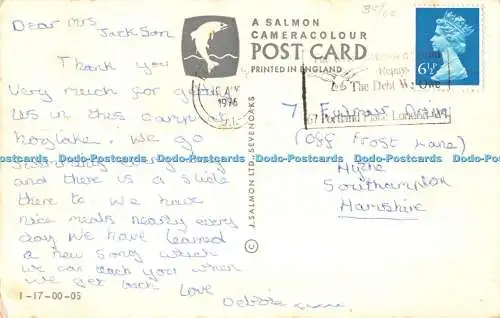 Dear Mrs
Jackson
Thank you
very much for getting
us in this camp at
. We go
swimming every day
and there is a slide
there to. We have
nice meals nearly every
day we have learned
a new song which
we can teach you when
we get back love
Debbie
1-17-00-05
A SALMON
CAMERACOLOUR
POST CARD
PRINTED IN ENGLAND
© J. SALMON LTD., SEVENOAKS
1976
Repay
The Debt We Owe
67 Portland Place London
6½P
7 Drive
(off Frost Lane)
Hythe
Southampton
Hamshire
Dodo-Postcards Dodo-Postcards Dodo-Postcards Dodo-Postcards Dodo-Postcards Dodo-Postcards Dodo-Postcards